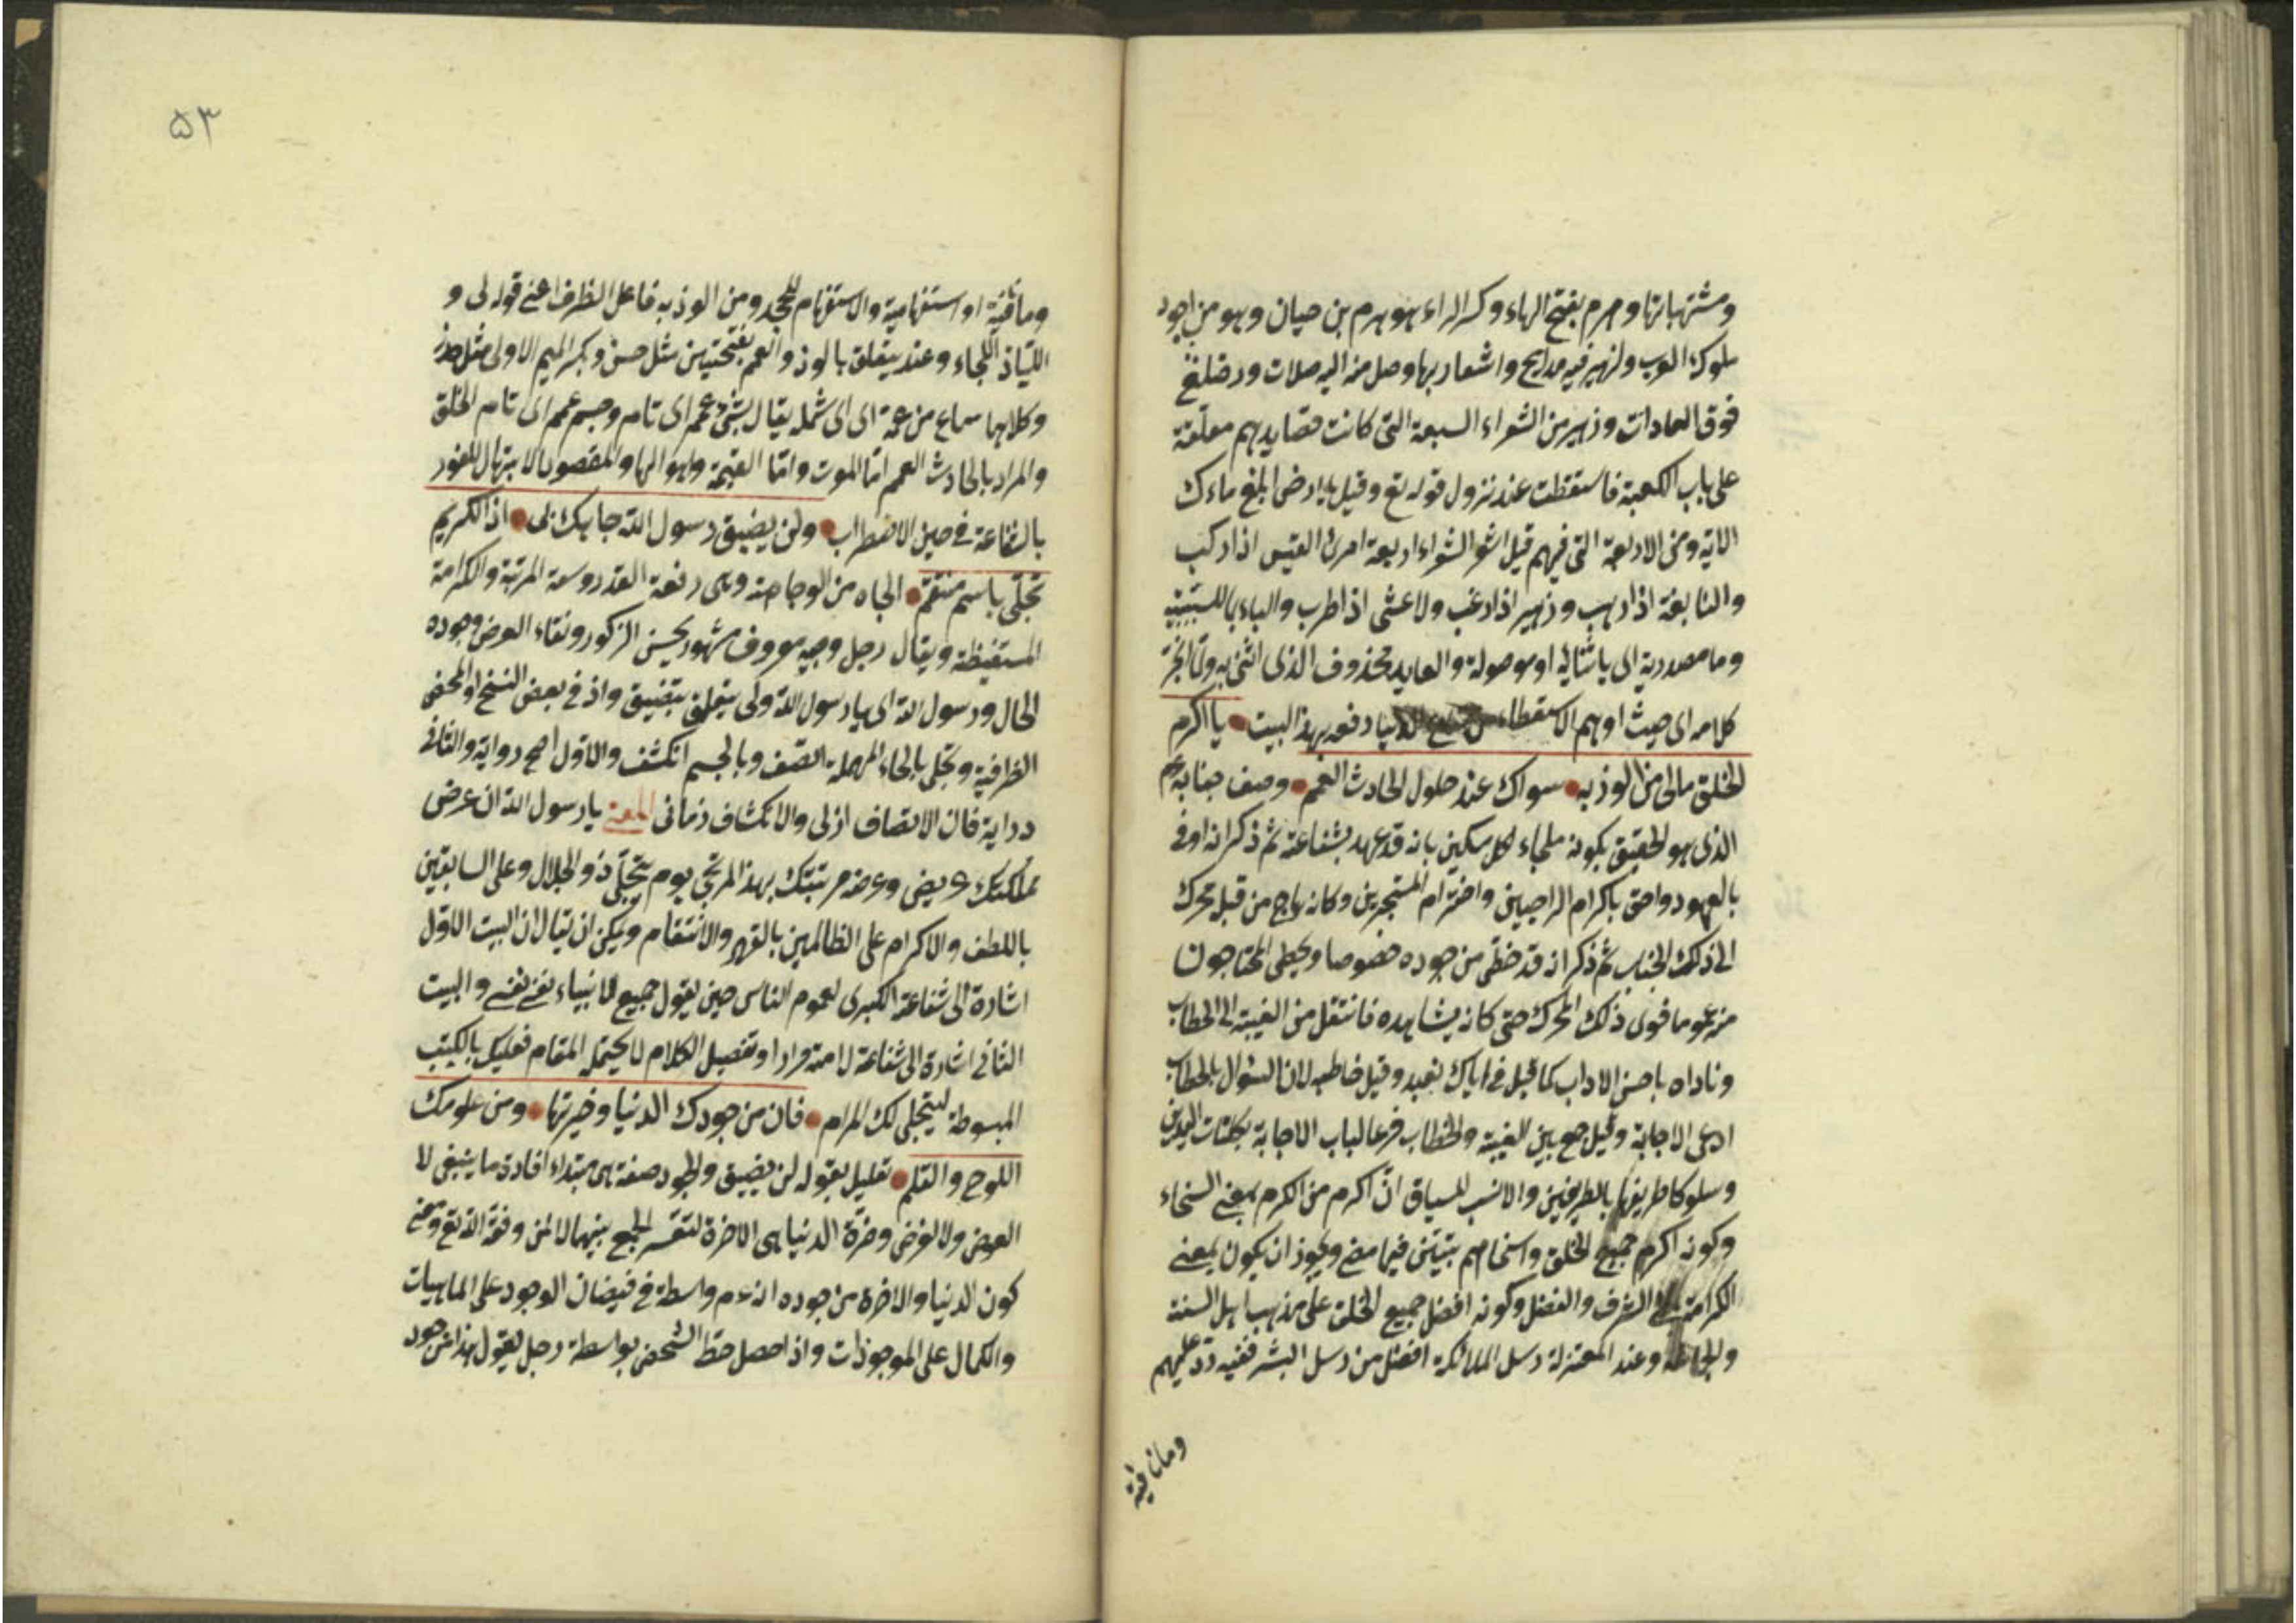 ومشتهياتها وهرم بفتح الهاء وكسر الراء هو هرم بن حيان وهو من اجود
ملوك العرب ولزهير فيه مدايح واشعار بها وصل منه اليه صلات ود خلع
فوق العادات وزهير من الشعراء السبعة التى كانت قصايدهم معلقة
على باب الكعبة فاسقطت عند نزول قوله تع وقيل يا ارض ابلعى ماءك
الاية ومن الاربعة التى فيهم قيل اشعر الشعراء اربعة امرئ القيس اذا ركب
والنابغة اذا رهب وزهير اذا رغب ولاعشى اذا طرب والباء بما للسببية
وما مصدرية اى باثنائه او موصولة والعايد محذوف الذى اثنى به ولما انجر
كلامه الى حيث اوهم الاستعطاء من الدنيا دفعه بهذا البيت يا اكرم
الخلق مالى من الوذ به سواك عند حلول الحادث العمم وصف جنابه عم
الذى هو الحقيق بكونه ملجاء لكل مسكين بانه قد عهد بشفاعة ثم ذكر انه اوفى
بالعهود واحق باكرام الراجين واحترام المستجيرين وكانه هاج من قبل محرك
الى ذلك الجناب ثم ذكر انه قد حظى من جوده خصوصا ويحظى المحتاجون
منه عموما فقوى ذلك المحرك حتى كانه يشاهده فانتقل من الغيبة الى الخطاب
وناداه باحسن الاداب كما قيل فى اياك نعبد وقيل خاطبه لان السؤال بالخطاب
ادعى الاجابة وقيل جمع بين الغيبة والخطاب فرعا لباب الاجابة بكلتا اليدين
وسلوكا طريقها بالطريقين والانسب للسياق ان اكرم من الكرم بمعنى السخاء
وكونه اكرم جميع الخلق واسخاهم بتبين فيما مضى ويجوز ان يكون بمعنى
الكرامة الشرف والفضل وكونه افضل جميع الخلق على مذهب اهل السنة
والجماعة وعند المعتزلة رسل الملائكة افضل من رسل البشر ففيه رد عليهم
وما نافية
٥٣
وما نافية او استفهامية والاستفهام للجحد ومن الوذ به فاعل الظرف اعنى قوله لى و
اللياذ اللجاء وعند يتعلق بالوذ والعمم بفتحتين مثل حسن وبكسر الميم الاولى مثل حذر
وكلاهما سماع من عمه اى شمله يقال شئ عمم اى تام وجسم عمم اى تام الخلق
والمراد بالحادث العمم اما الموت واما القيمة واهوالها والمقصود الابتهال للفوز
بالشفاعة فى حين الاضطراب ولن يضيق رسول الله جاهك بى اذا الكريم
تحلى باسم منتقم الجاه من الوجاهة وهى رفعة القدر وسعة المرتبة والكرامة
المستفيظة ويقال رجل وجيه معروف مشهور بحسن الزكور ونقاء العرض وجوده
الحال ورسول الله اى يا رسول الله ولى يتعلق بتضييق واذ فى بعض النسخ او المحض
الظرفية وتحلى بالحاء المهملة اتصف وبالجيم انكشف والاول اصح رواية والثانى
دراية فان الاتصاف ازلى والانكشاف زمانى المعنى يا رسول الله ان عرض
مملكتك عريض وعرضه مرتبتك بهذا المرتجى يوم يتجلى ذو الجلال وعلى السابقين
باللطف والاكرام على الظالمين بالقهر والانتقام ويمكن ان يقال ان البيت الاول
اشارة الى شفاعة الكبرى لعموم الناس حين يقول جميع الانبياء نفسى نفسى والبيت
الثانى اشارة الى شفاعة لامته مرادا وتفصيل الكلام لا يحتمله المقام فعليك بالكتب
المبسوطة ليتجلى لك المرام فان من جودك الدنيا وضرتها ومن علومك
اللوح والقلم تعليل بقوله لن يضيق والجود صفة هى مبتداء افادة ما ينبغى لا
العوض ولا لغرض وضرة الدنيا هى الاخرة لتعسر الجمع بينهما الا لمن وفقه الله تع ومعنى
كون الدنيا والاخرة من جوده انه عم واسطة فى فيضان الوجود على الماهيات
والكمال على الموجودات واذا حصل حظ الشخص بواسطة رجل يقول هذا من جود